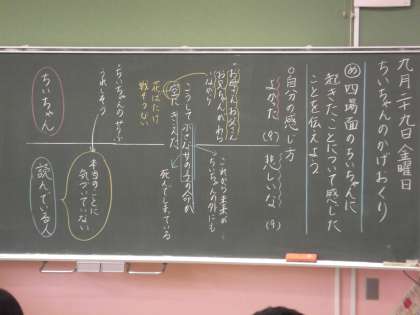 九月二十九日金曜日
ちいちゃんのかげおくり
め 四場面のちいちゃんに
起きたことについて感じた
ことを伝えよう
○自分の感じ方
よかった (9)
悲しいな (9)
・お母さんお父さん
お兄ちゃん
これが
ちいちゃんの外にも
こうして小さな女の子の命が
空にきえた
死んでしまっている
花ばたけ
戦そうない
・ちいちゃんの
うれしそう
本当のことに
気づいていない
ちいちゃん
読んでいる人